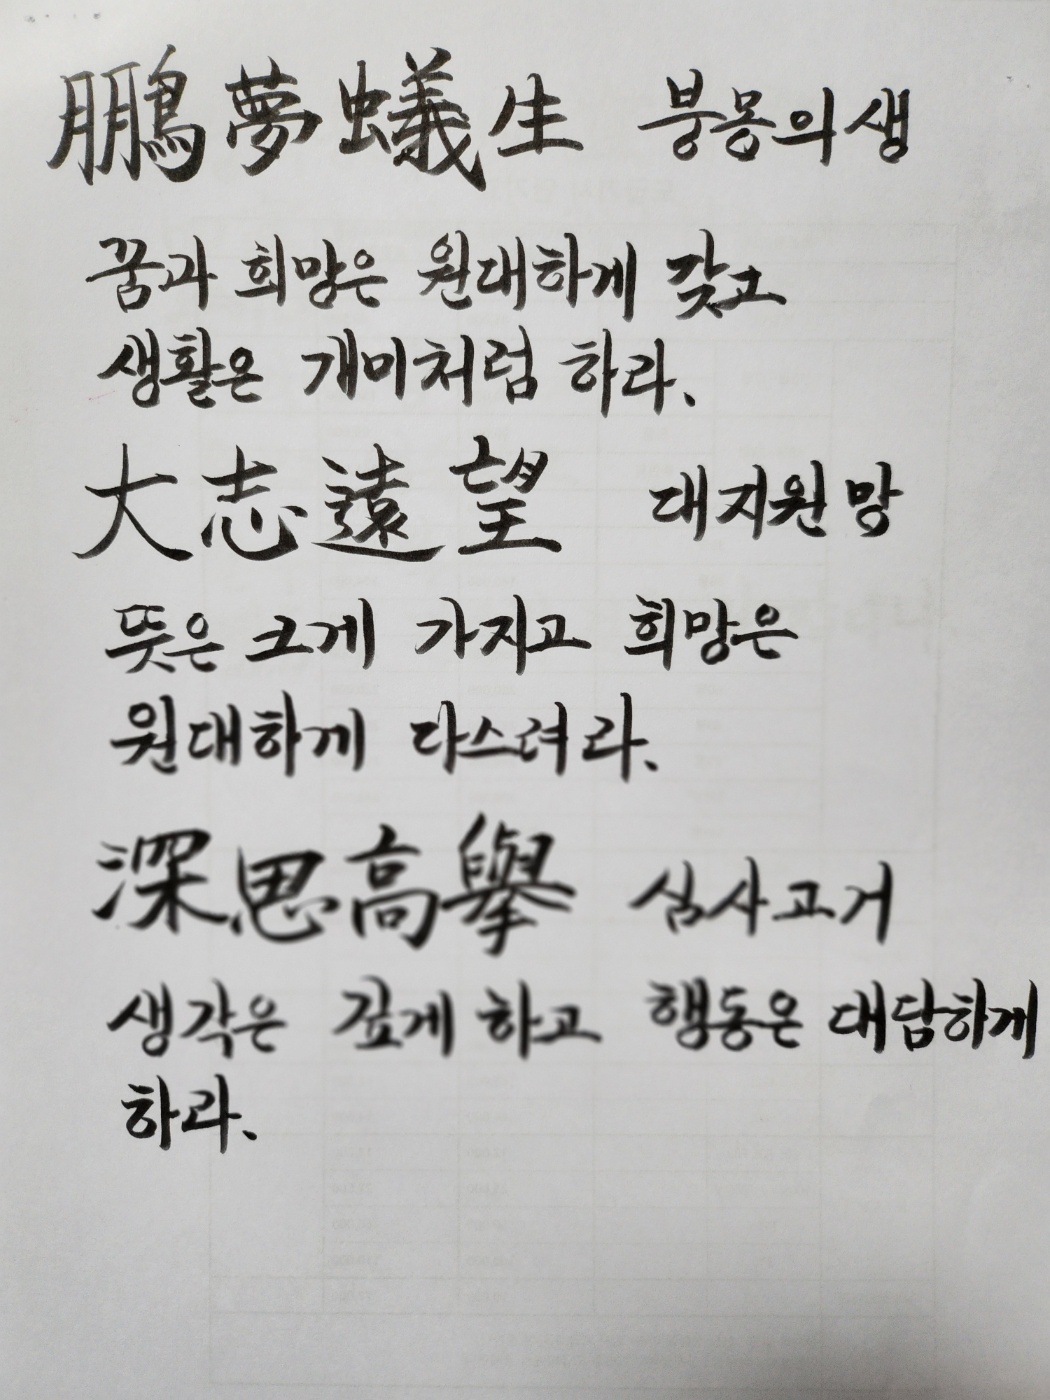 鵬夢蟻生 붕몽의생
꿈과 희망은 원대하게 갖고
생활은 개미처럼 하라.
大志遠望 대지원망
뜻은 크게 가지고 희망은
원대하게 다스려라.
深思高擧 심사고거
생각은 깊게 하고 행동은 대담하게
하라.